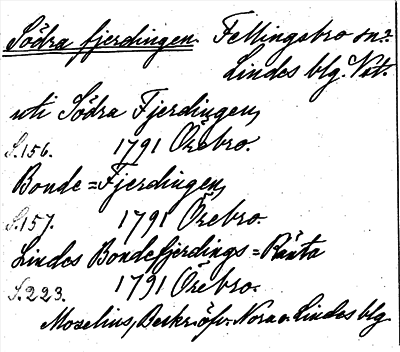 Södra fjerdingen. Fellingsbro sn?
Lindes blg. Vst.
uti Södra Fjerdingen,
S.156. 1791 Örebro.
Bonde=Fjerdingen,
S.157. 1791 Örebro.
Lindes Bondefjerdings=Ränta
S.223. 1791 Örebro.
Moxelius, Beskr. öfv. Nora o. Lindes blg